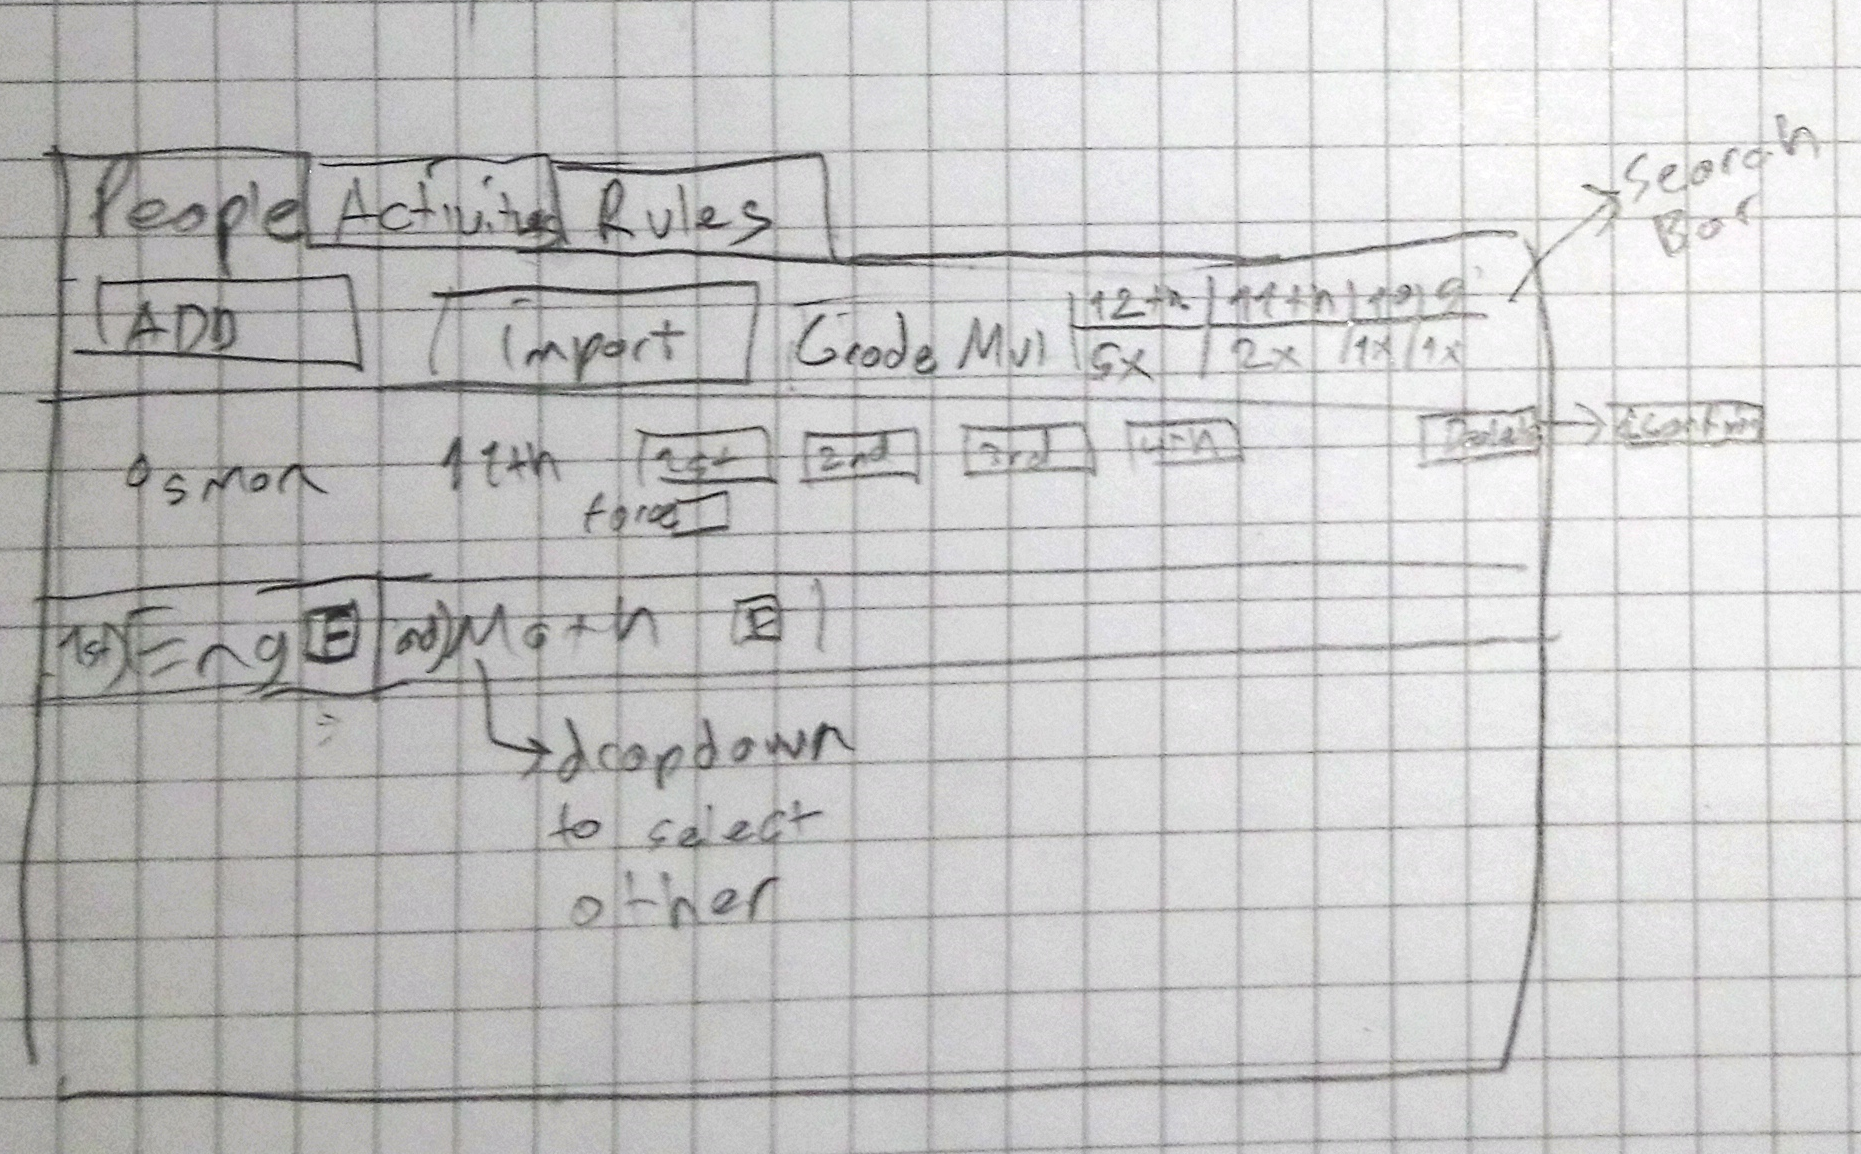 People Activities Rules
Search
Bar
ADD Import Grade Mul 12th 11th 10 9
5x 2x 1x 1x
Osman 11th 1st 2nd 3rd 4th Delete confirm
force
1st) Eng E nd) Math E
dropdown
to select
other